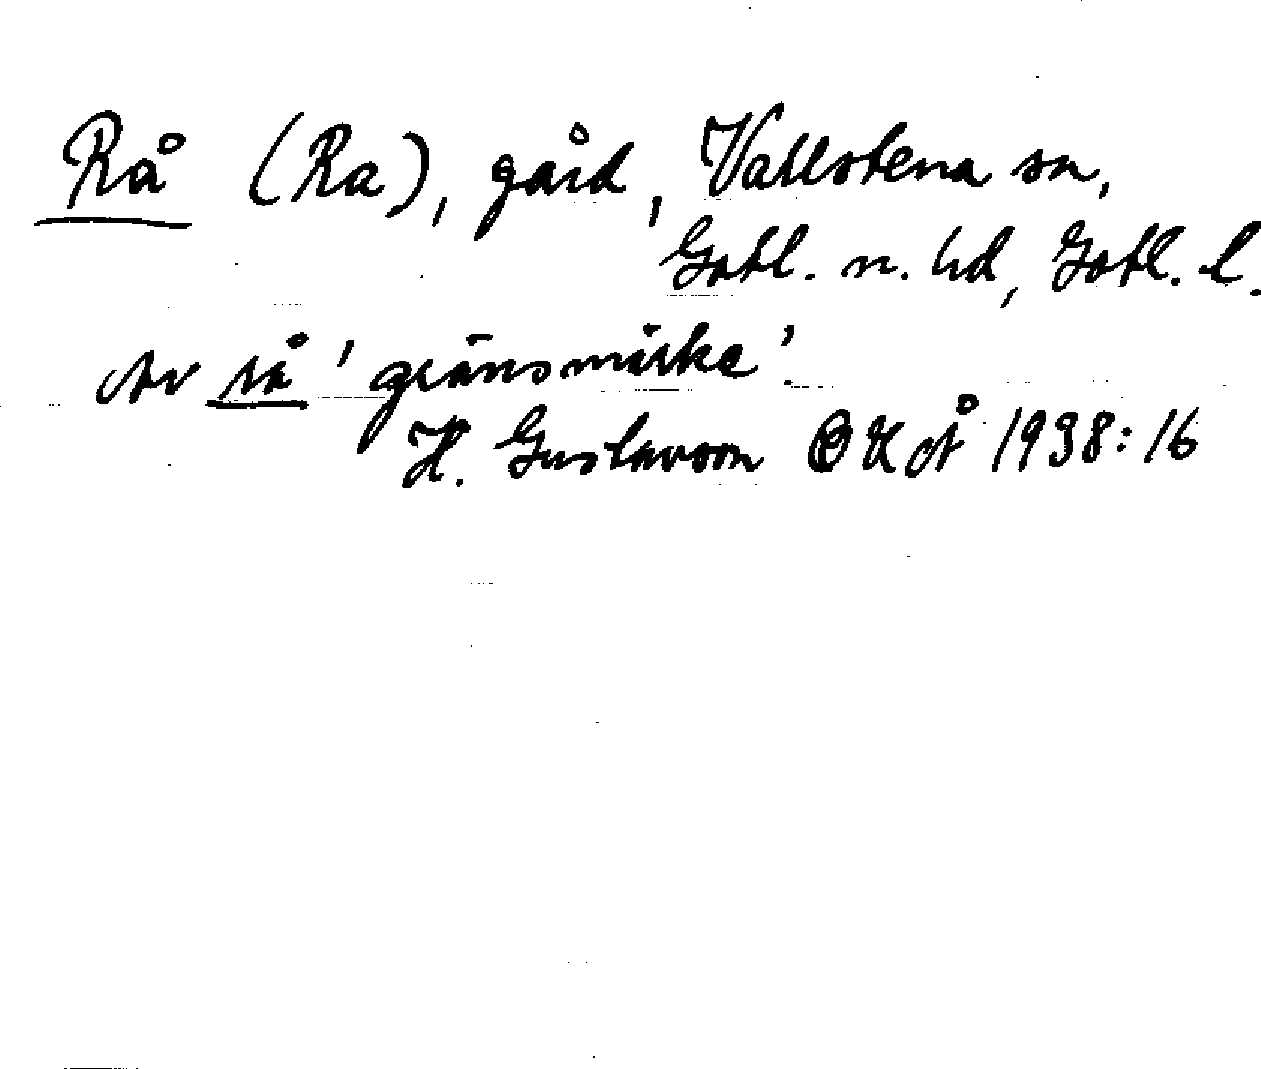 Rå (Ra), gård, Vallstena sn,
Gotl. n. hd, Gotl. l.
Av rå 'gränsmärke'.
H. Gustavson OUÅ 1938:16